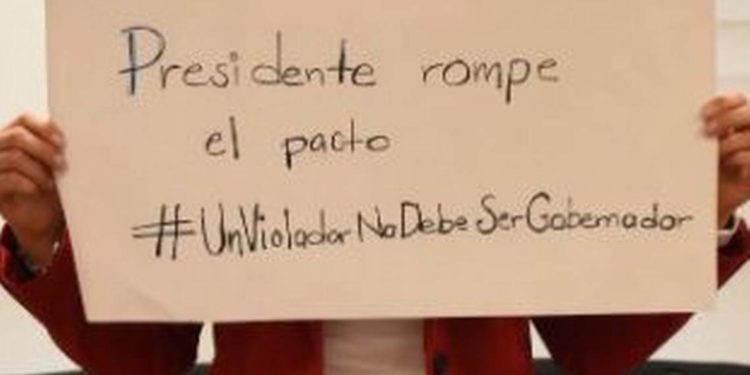 Presidente rompe
el pacto
#UnVioladorNoDebeSerGobernador